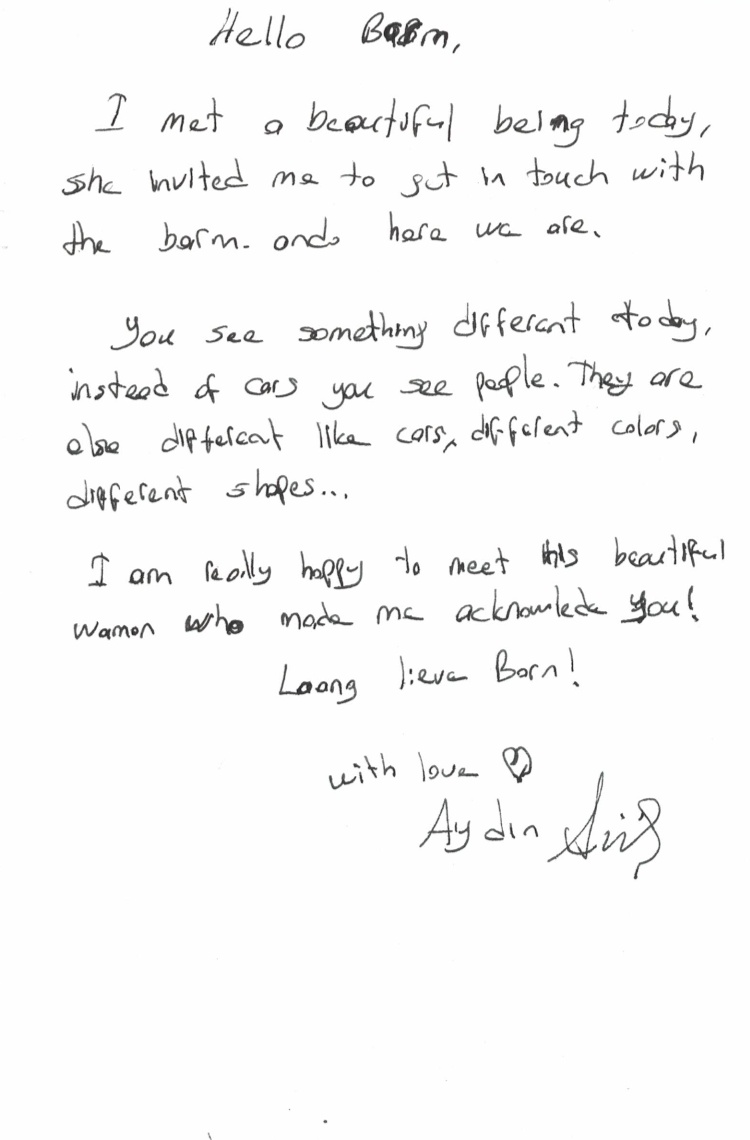 Hello Barm,
I met a beautiful being today,
she invited me to get in touch with
the barm. and here we are.
You see something different today,
instead of cars you see people. They are
also different like cars, different colors,
different shapes...
I am really happy to meet this beautiful
waman who made me acknowlede you!
Laang lieve Barn!
with love
Aydin